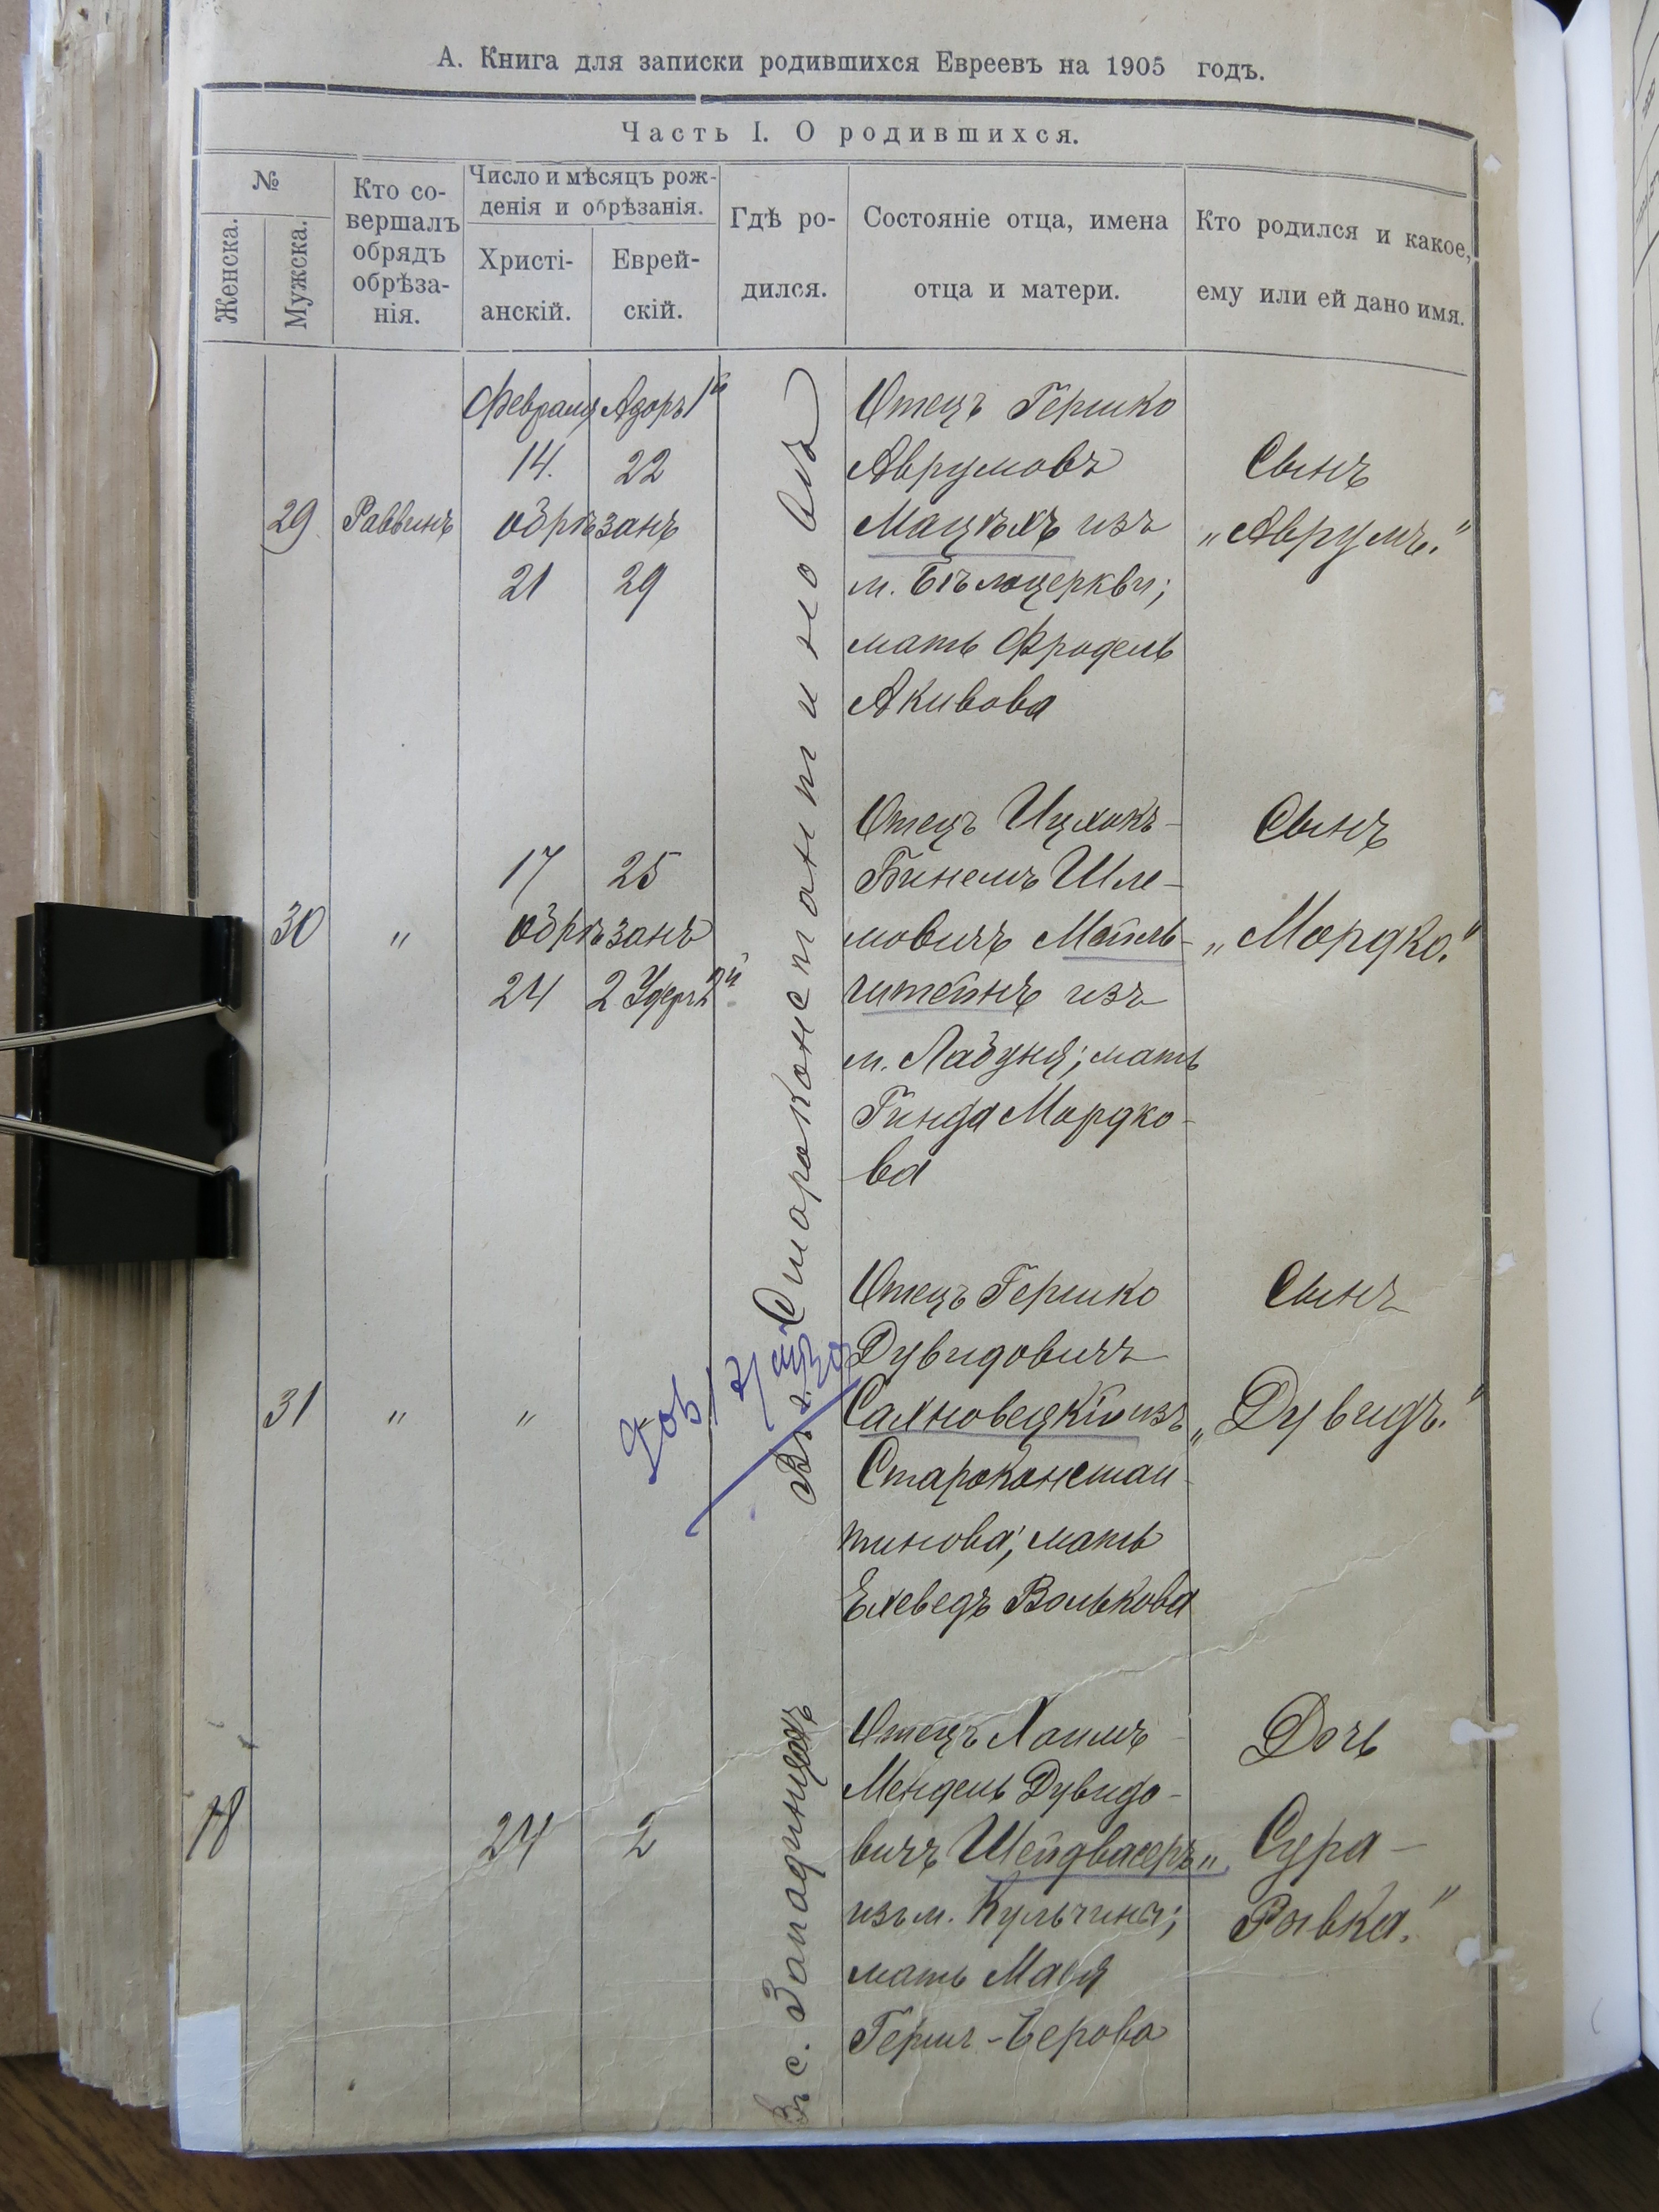 А. Книга для записки родившихся Евреевъ на 1905 годъ.
Часть I. О родившихся.
№
Женска.
Мужска.
Кто со-
вершалъ
обрядъ
обрѣза-
нія.
Число и мѣсяцъ рож-
денія и обрѣзанія.
Христі-
анскій.
Еврей-
скій.
Гдѣ ро-
дился.
Состояніе отца, имена
отца и матери.
Кто родился и какое,
ему или ей дано имя.
Февраля Адоръ 1й
14. 22
29 Раввинъ обрѣзанъ
21 29
Въ г. Староконстантиновѣ
Отецъ Гершко
Аврумовъ
Мацѣхъ изъ
м. Бѣлоцеркви;
мать Фрадель
Акивова
Сынъ
„Аврумъ."
17 25
30 " обрѣзанъ
24 2 Удеръ 2й
Отецъ Ицхокъ-
Бинемъ Шле-
мовичъ Мейль-
штейнъ изъ
м. Лабуня; мать
Гинда Мордко-
ва
Сынъ
„Мордко."
31 " "
Отецъ Гершко
Дувидовичъ
Сахновецкій изъ
Староконстан-
тинова; мать
Ехеведъ Волькова
Сынъ
„Дувидъ."
18 24 2
Въ с. Западинцахъ
Отецъ Хаимъ
Мендель Дувидо-
вичъ Шейдвасеръ
изъ м. Кульчина;
мать Мася
Гершъ-Берова
Дочь
„Сура-
Ривка."